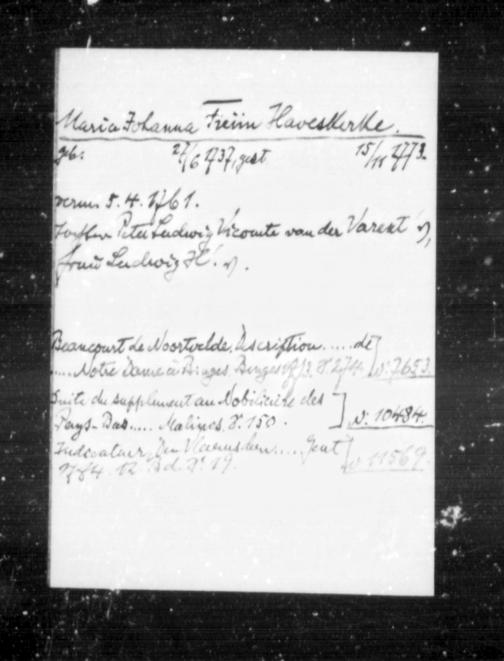 Maria Johanna Freiin Haveskerke.
geb. 27/6 1737, gest 15/11 1773.
verm. 5. 4. 1761.
Peter Ludwig Vicomte van der Varent
Ludwig H.
Beaucourt de Noortvelde, Description..... de
..... Notre Dame à Bruges Bruges 1773. S. 274. N: 7653.
Suite du supplement au Nobiliaire des
Pays-Bas..... Malines S. 150. N: 10484.
Den Vlaemschen..... Gent
1784. 12. Bd. S. 19. N 11569.